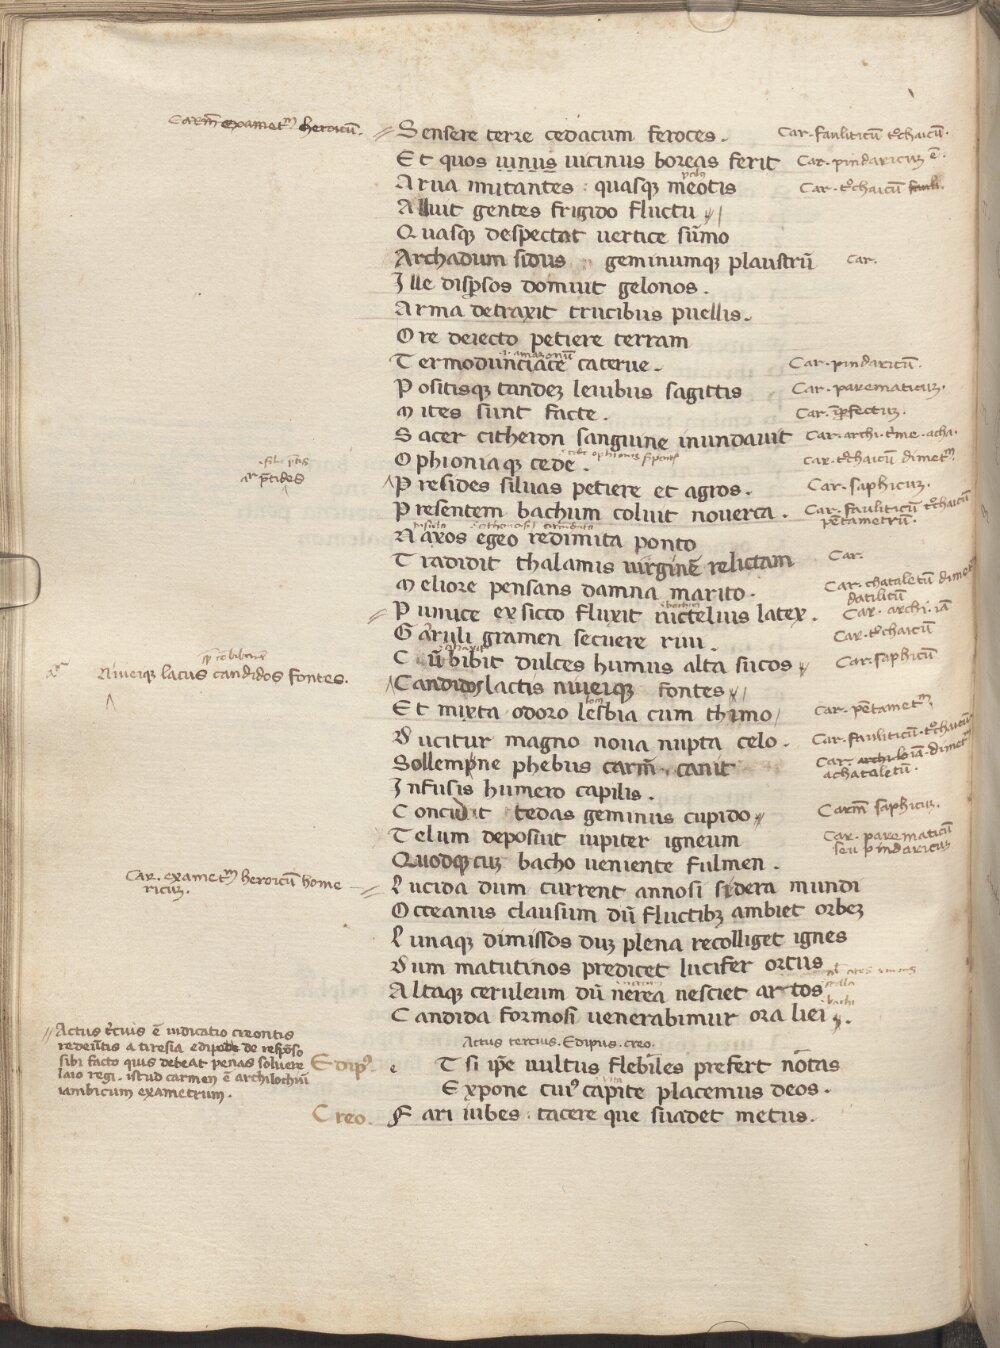 Carm̄ exametᵐ heroicū.
Sensere terre cedacum feroces.
Car. fauliticū tͦchaicū.
Et quos iunus uicinus boreas ferit
Car. pindaricuꝫ ē.
Arua mutantes : quasqꝫ meotis
Car. tͦchaicū
Alluit gentes frigido fluctu
Quasqꝫ despectat uertice sūmo
Archadum sidus geminumqꝫ plaustrū
Car.
Ille disꝑsos domuit gelonos.
Arma detraxit trucibus puellis.
Ore deiecto petiere terram
amazonū
Termodunciace caterue.
Car. pindaricū.
Positisqꝫ tandeꝫ leuibus sagittis
Car. parematicuꝫ.
Mites sunt facte.
Car. īperfectuꝫ.
Sacer citheron sanguine inundauit
Car. archi. tͥme. acha.
Ophioniaqꝫ cede.
Car. tͦchaicū dimetᵐ.
Presides siluas petiere et agros.
Car. saphicuꝫ.
Presentem bachum coluit nouerca.
Car. fauliticū tͦchaicū
pētametrū.
Naxos egeo redimita ponto
Tradidit thalamis uirginē relictam
Car.
Meliore pensans damna marito.
Car. chataletū dimet
datilicū
Pumice ex sicco fluxit nicteluis latex.
Car. archi. iā
Garuli gramen secuere riui.
Car. tͦchaicū
Cūbibit dulces humus alta sucos
Car. saphicū
Niueiqꝫ lacus candidos fontes.
Candidos lactis niueiqꝫ fontes
Et mixta odoro lesbia cum thimo
Car. pētametᵐ.
Ducitur magno noua nupta celo.
Car. fauliticū. tͦchaicū
Sollempne phebus carm̄. canit
Car. iā. dimetᵐ
achataletū.
Infusis humero capilis.
Concutit tedas geminus cupido
Carm̄ saphicuꝫ.
Telum deposuit iupiter igneum
Car. parematicū
seu pindaricuꝫ
Car. exametᵐ heroicū home
ricuꝫ.
Quodqꝫ cuꝫ bacho ueniente fulmen.
Lucida dum current annosi sidera mundi
Occeanus clausum dū fluctibꝫ ambiet orbeꝫ
Lunaqꝫ dimissos duꝫ plena recolliget ignes
Dum matutinos predicet lucifer ortus
Altaqꝫ ceruleum dū nerea nesciet artos
Candida formosi uenerabimur ora liei.
Actus tercius. Edipus. creo.
Actus tͨcius ē indicatio creontis
redeūtis a tiresia edipode de respōso
sibi facto quis debeat penas soluere
laio regi. istud carmen ē archilochiū
iambicum exametrum.
Edipꝰ. e Tsi ip̄e uultus flebiles prefert nōtas
Expone cuiꝰ capite placemus deos.
Creo. Fari iubes : tacere que suadet metus.